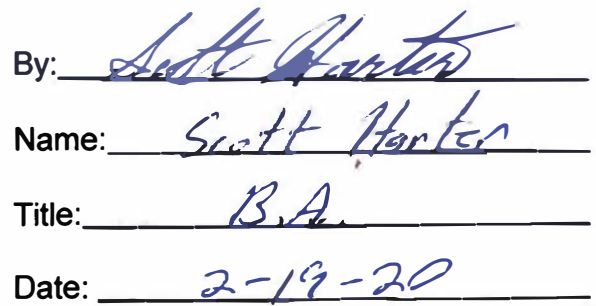 By: Scott Harter
Name: Scott Harter
Title: B.A.
Date: 2-19-20